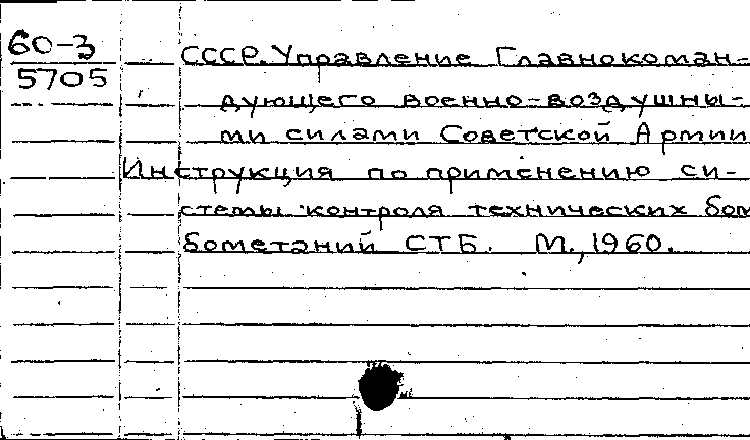 60-3
5705
СССР. Управление Главнокоман-
дующего военно-воздушны-
ми силами Советской Армии
Инструкция по применению си-
стемы контроля технических бом
бометаний СТБ. М., 1960.